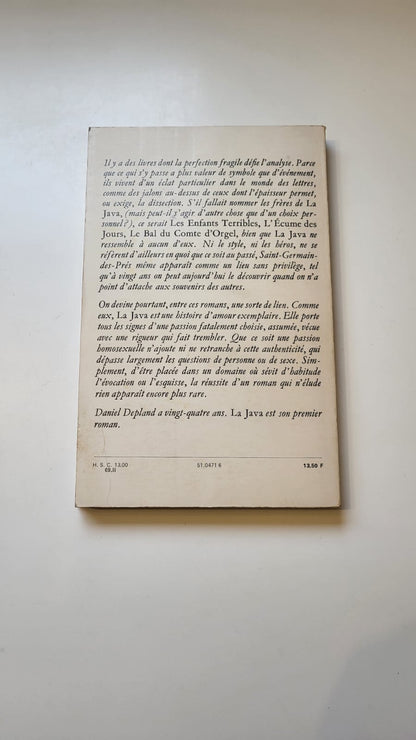 Il y a des livres dont la perfection fragile défie l'analyse. Parce
que ce qui s'y passe a plus valeur de symbole que d'événement,
ils vivent d'un éclat particulier dans le monde des lettres,
comme des jalons au-dessus de ceux dont l'épaisseur permet,
ou exige, la dissection. S'il fallait nommer les frères de La
Java, (mais peut-il s'agir d'autre chose que d'un choix per-
sonnel?), ce serait Les Enfants Terribles, L'Écume des
Jours, Le Bal du Comte d'Orgel, bien que La Java ne
ressemble à aucun d'eux. Ni le style, ni les héros, ne se
réfèrent d'ailleurs en quoi que ce soit au passé, Saint-Germain-
des-Prés même apparaît comme un lieu sans privilège, tel
qu'à vingt ans on peut aujourd'hui le découvrir quand on n'a
point d'attache aux souvenirs des autres.
On devine pourtant, entre ces romans, une sorte de lien. Comme
eux, La Java est une histoire d'amour exemplaire. Elle porte
tous les signes d'une passion fatalement choisie, assumée, vécue
avec une rigueur qui fait trembler. Que ce soit une passion
homosexuelle n'ajoute ni ne retranche à cette authenticité, qui
dépasse largement les questions de personne ou de sexe. Sim-
plement, d'être placée dans un domaine où sévit d'habitude
l'évocation ou l'esquisse, la réussite d'un roman qui n'élude
rien apparaît encore plus rare.
Daniel Depland a vingt-quatre ans. La Java est son premier
roman.
H. S. C. 13,00 51.0471 6 13,50 F
69.II